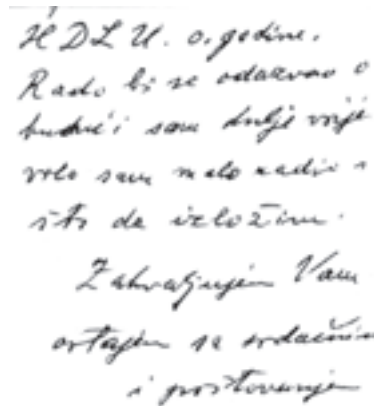 H D L U. o. godine.
Rado bi se odazvao o
budući sam dulje vrije
vrlo sam malo radio i
što da izložim.
Zahvaljujem Vam
ostajem sa srdačnim
i poštovanjem